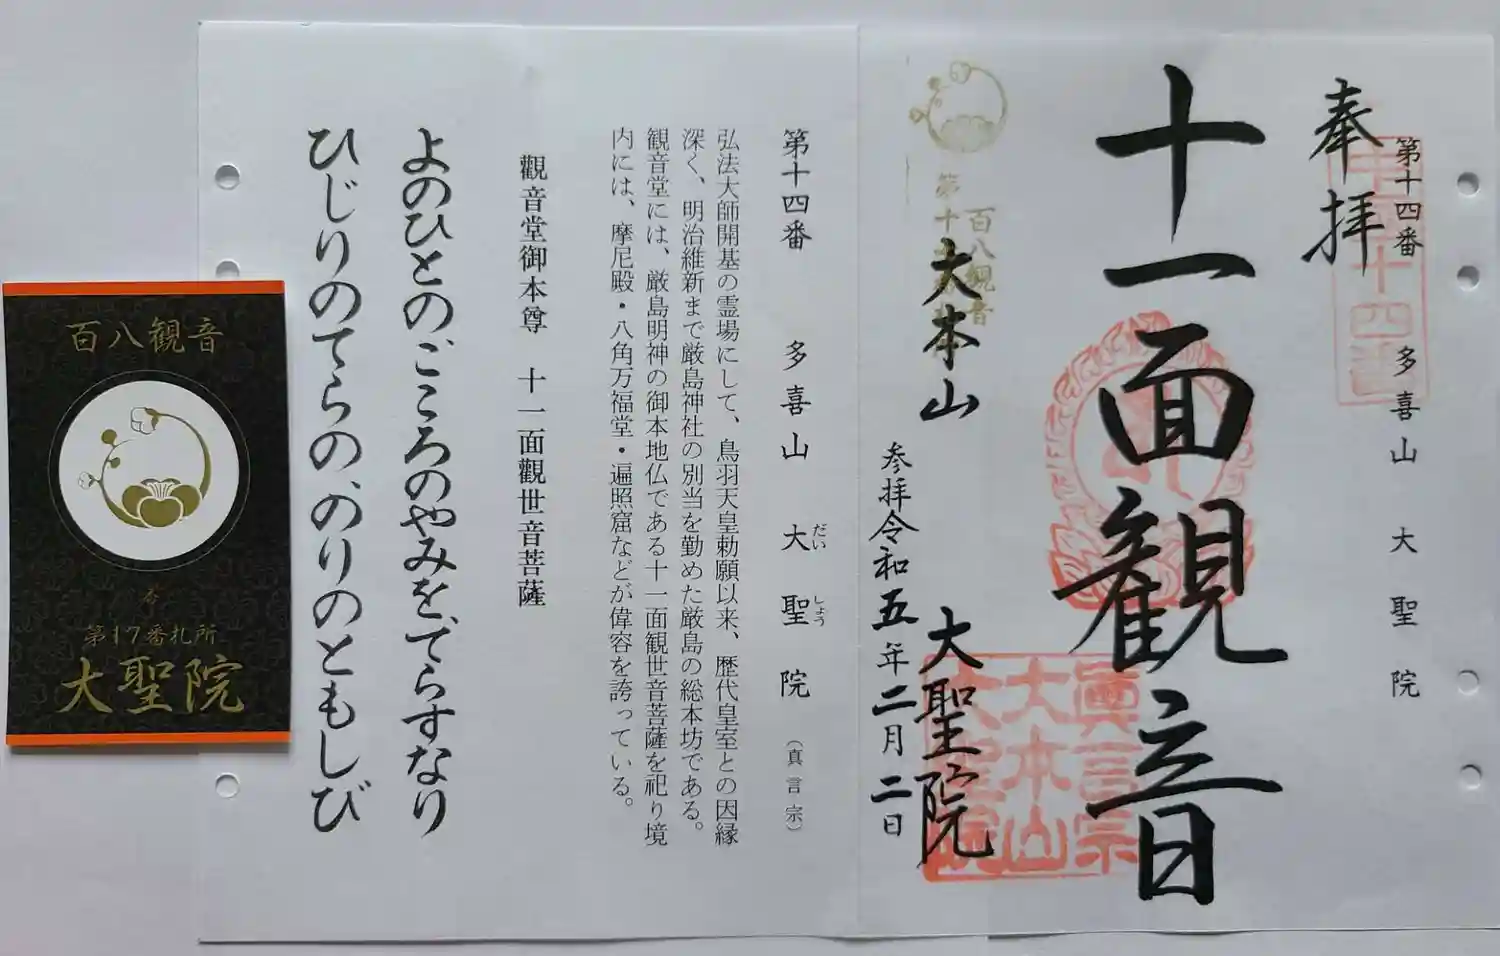 第十四番 多喜山 大聖院
奉拝
十一面観音
百八観音
大本山 大聖院
参拝令和五年二月二日
眞言宗
大本山
第十四番 多喜山 大聖院 (真言宗)
だい しょう
弘法大師開基の霊場にして、鳥羽天皇勅願以来、歴代皇室との因縁
深く、明治維新まで厳島神社の別当を勤めた厳島の総本坊である。
観音堂には、厳島明神の御本地仏である十一面観世音菩薩を祀り境
内には、摩尼殿・八角万福堂・遍照窟などが偉容を誇っている。
觀音堂御本尊 十一面觀世音菩薩
よのひとの、こころのやみを、てらすなり
ひじりのてらの、のりのともしび
百八観音
第17番札所
大聖院